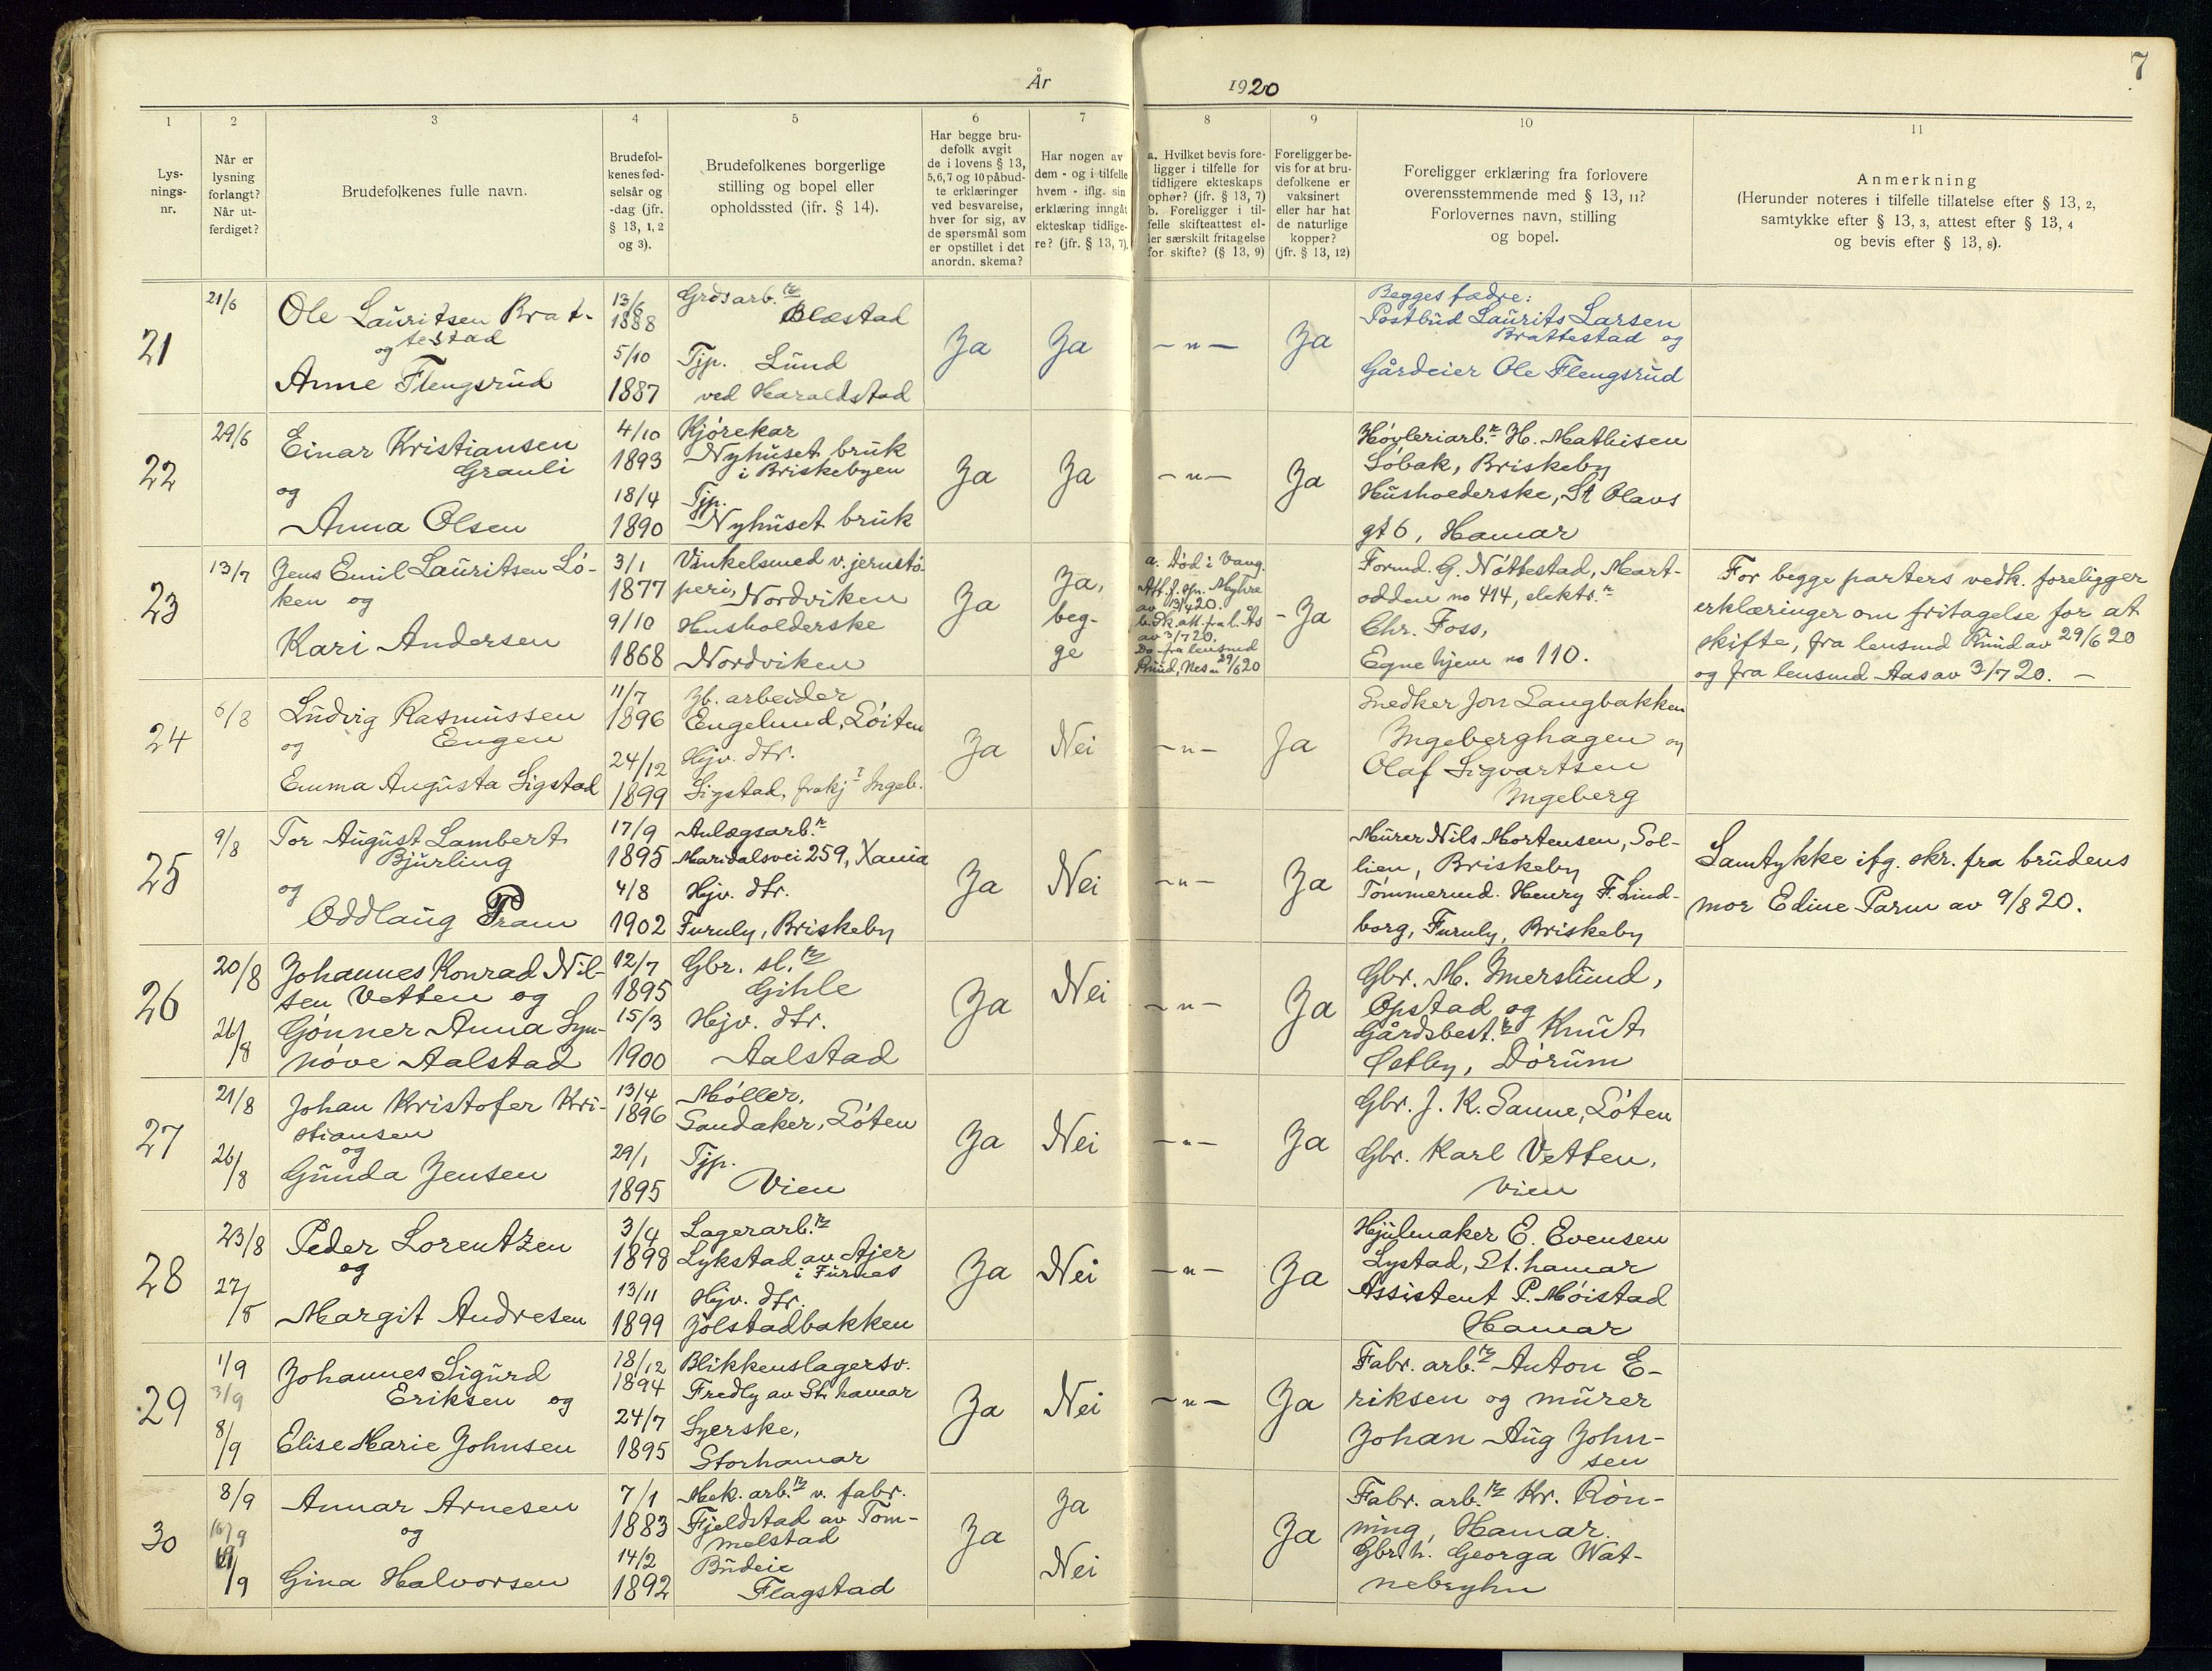 7
År 1920
1 2 3 4 5 6 7 8 9 10 11
Lys-
nings-
nr.
Når er
lysning
forlangt?
Når ut-
ferdiget?
Brudefolkenes fulle navn.
Brudefol-
kenes fød-
selsår og
-dag (jfr.
§ 13, 1, 2
og 3).
Brudefolkenes borgerlige
stilling og bopel eller
opholdssted (jfr. § 14).
Har begge bru-
defolk avgit
de i lovens § 13,
5, 6, 7 og 10 påbud-
te erklæringer
ved besvarelse,
hver for sig, av
de spørsmål som
er opstillet i det
anordn. skema?
Har nogen av
dem - og i tilfelle
hvem - iflg. sin
erklæring inngåt
ekteskap tidlige-
re? (jfr. § 13, 7).
a. Hvilket bevis fore-
ligger i tilfelle for
tidligere ekteskaps
ophør? (jfr. § 13, 7)
b. Foreligger i til-
felle skifteattest el-
ler særskilt fritagelse
for skifte? (§ 13, 9)
Foreligger be-
vis for at bru-
defolkene er
vaksinert
eller har hat
de naturlige
kopper?
(jfr. § 13, 12)
Foreligger erklæring fra forlovere
overensstemmende med § 13, 11?
Forlovernes navn, stilling
og bopel.
Anmerkning
(Herunder noteres i tilfelle tillatelse efter § 13, 2,
samtykke efter § 13, 3, attest efter § 13, 4
og bevis efter § 13, 8).
21
21/6
Ole Lauritsen Brat-
testad
og
Anne Flengsrud
13/6
1888
5/10
1887
Grdsarb.r
Blæstad
Tjp. Lund
ved Haraldstad
Ja
Ja
- " -
Ja
Begges fædre:
Postbud Laurits Larsen
Brattestad og
Gårdeier Ole Flengsrud
22
29/6
Einar Kristiansen
Grauli
og
Anna Olsen
4/10
1893
18/4
1890
Kjörekar
Nyhuset bruk
i Briskebyen
Tjp.
Nyhuset bruk
Ja
Ja
- " -
Ja
Hövleriarb.r H. Mathisen
Löbak, Briskeby
Husholderske, St Olavs
gt 6, Hamar
23
13/7
Jens Emil Lauritsen Lö-
ken og
Kari Andersen
3/1
1877
9/10
1868
Vinkelsmed v. jernstö-
peri, Nordviken
Husholderske
Nordviken
Ja
Ja,
beg-
ge
a. Död i Vang.
Att. f. spr. Myhre
av 13/4 20.
b. Sk. att. fra l. As
av 3/7 20.
Do fra lensmd
Ruud, Nes av 29/6 20
- Ja
Formd. G. Nöttestad, Mart-
odden no 414, elektr.r
Chr. Foss,
Egne hjem no 110.
For begge parters vedk. foreligger
erklæringer om fritagelse for at
skifte, fra lensmd Ruud av 29/6 20
og fra lensmd Aas av 3/7 20. -
24
6/8
Ludvig Rasmussen
Engen
og
Emma Augusta Sigstad
11/7
1896
24/12
1899
Jb. arbeider
Engelund, Löiten
Hjv. dtr.
Sigstad, frakj. Ingeb.
Ja
Nei
- " -
Ja
Snedker Jon Langbakken
Ingeberghagen og
Olaf Sigvartsen
Ingeberg
25
9/8
Tor August Lambert
Bjurling
og
Oddlaug Pram
17/9
1895
4/8
1902
Anlægsarb.r
Maridalsvei 259, Xania
Hjv. dtr.
Furuly, Briskeby
Ja
Nei
- " -
Ja
Murer Nils Mortensen, Sol-
lien, Briskeby
Tömmermd. Henry F. Lind-
borg, Furuly, Briskeby
Samtykke ifg. skr. fra brudens
mor Edine Parm av 9/8 20.
26
20/8
26/8
Johannes Konrad Nil-
sen Vetten og
Gönner Anna Syn-
növe Aalstad
12/7
1895
15/3
1900
Gbr. sl.r
Gihle
Hjv. dtr.
Aalstad
Ja
Nei
- " -
Ja
Gbr. M. Imerslund,
Opstad og
Gårdsbest.r Knut
Østby, Dörum
27
21/8
26/8
Johan Kristofer Kri-
stiansen
og
Gunda Jensen
13/4
1896
29/1
1895
Möller,
Sandaker, Löten
Tjp.
Vien
Ja
Nei
- " -
Ja
Gbr. J. K. Sanne, Löten
Gbr. Karl Vetten,
Vien
28
23/8
27/8
Peder Lorentzen
og
Margit Andresen
3/4
1898
13/11
1899
Lagerarb.r
Lykstad av Ajer
i Furnes
Hjv. dtr.
Jölstadbakken
Ja
Nei
- " -
Ja
Hjulmaker E. Evensen
Lystad, St. hamar
Assistent P. Möistad
Hamar
29
1/9
3/9
8/9
Johannes Sigurd
Eriksen og
Elise Marie Johnsen
18/12
1894
24/7
1895
Blikkenslagersv.
Fredly av St. hamar
Syerske,
Storhamar
Ja
Nei
- " -
Ja
Fabr. arb.r Anton E-
riksen og murer
Johan Aug John-
sen
30
8/9
Annar Arnesen
og
Gina Halvorsen
7/1
1883
14/2
1892
Mek. arb.r v. fabr.
Fjeldstad av Tom-
melstad
Budeie
Flagstad
Ja
Ja
Nei
Ja
Fabr. arb.r Kr. Rön-
ning, Hamar.
Gbr. h. Georga Wat-
nebryhn